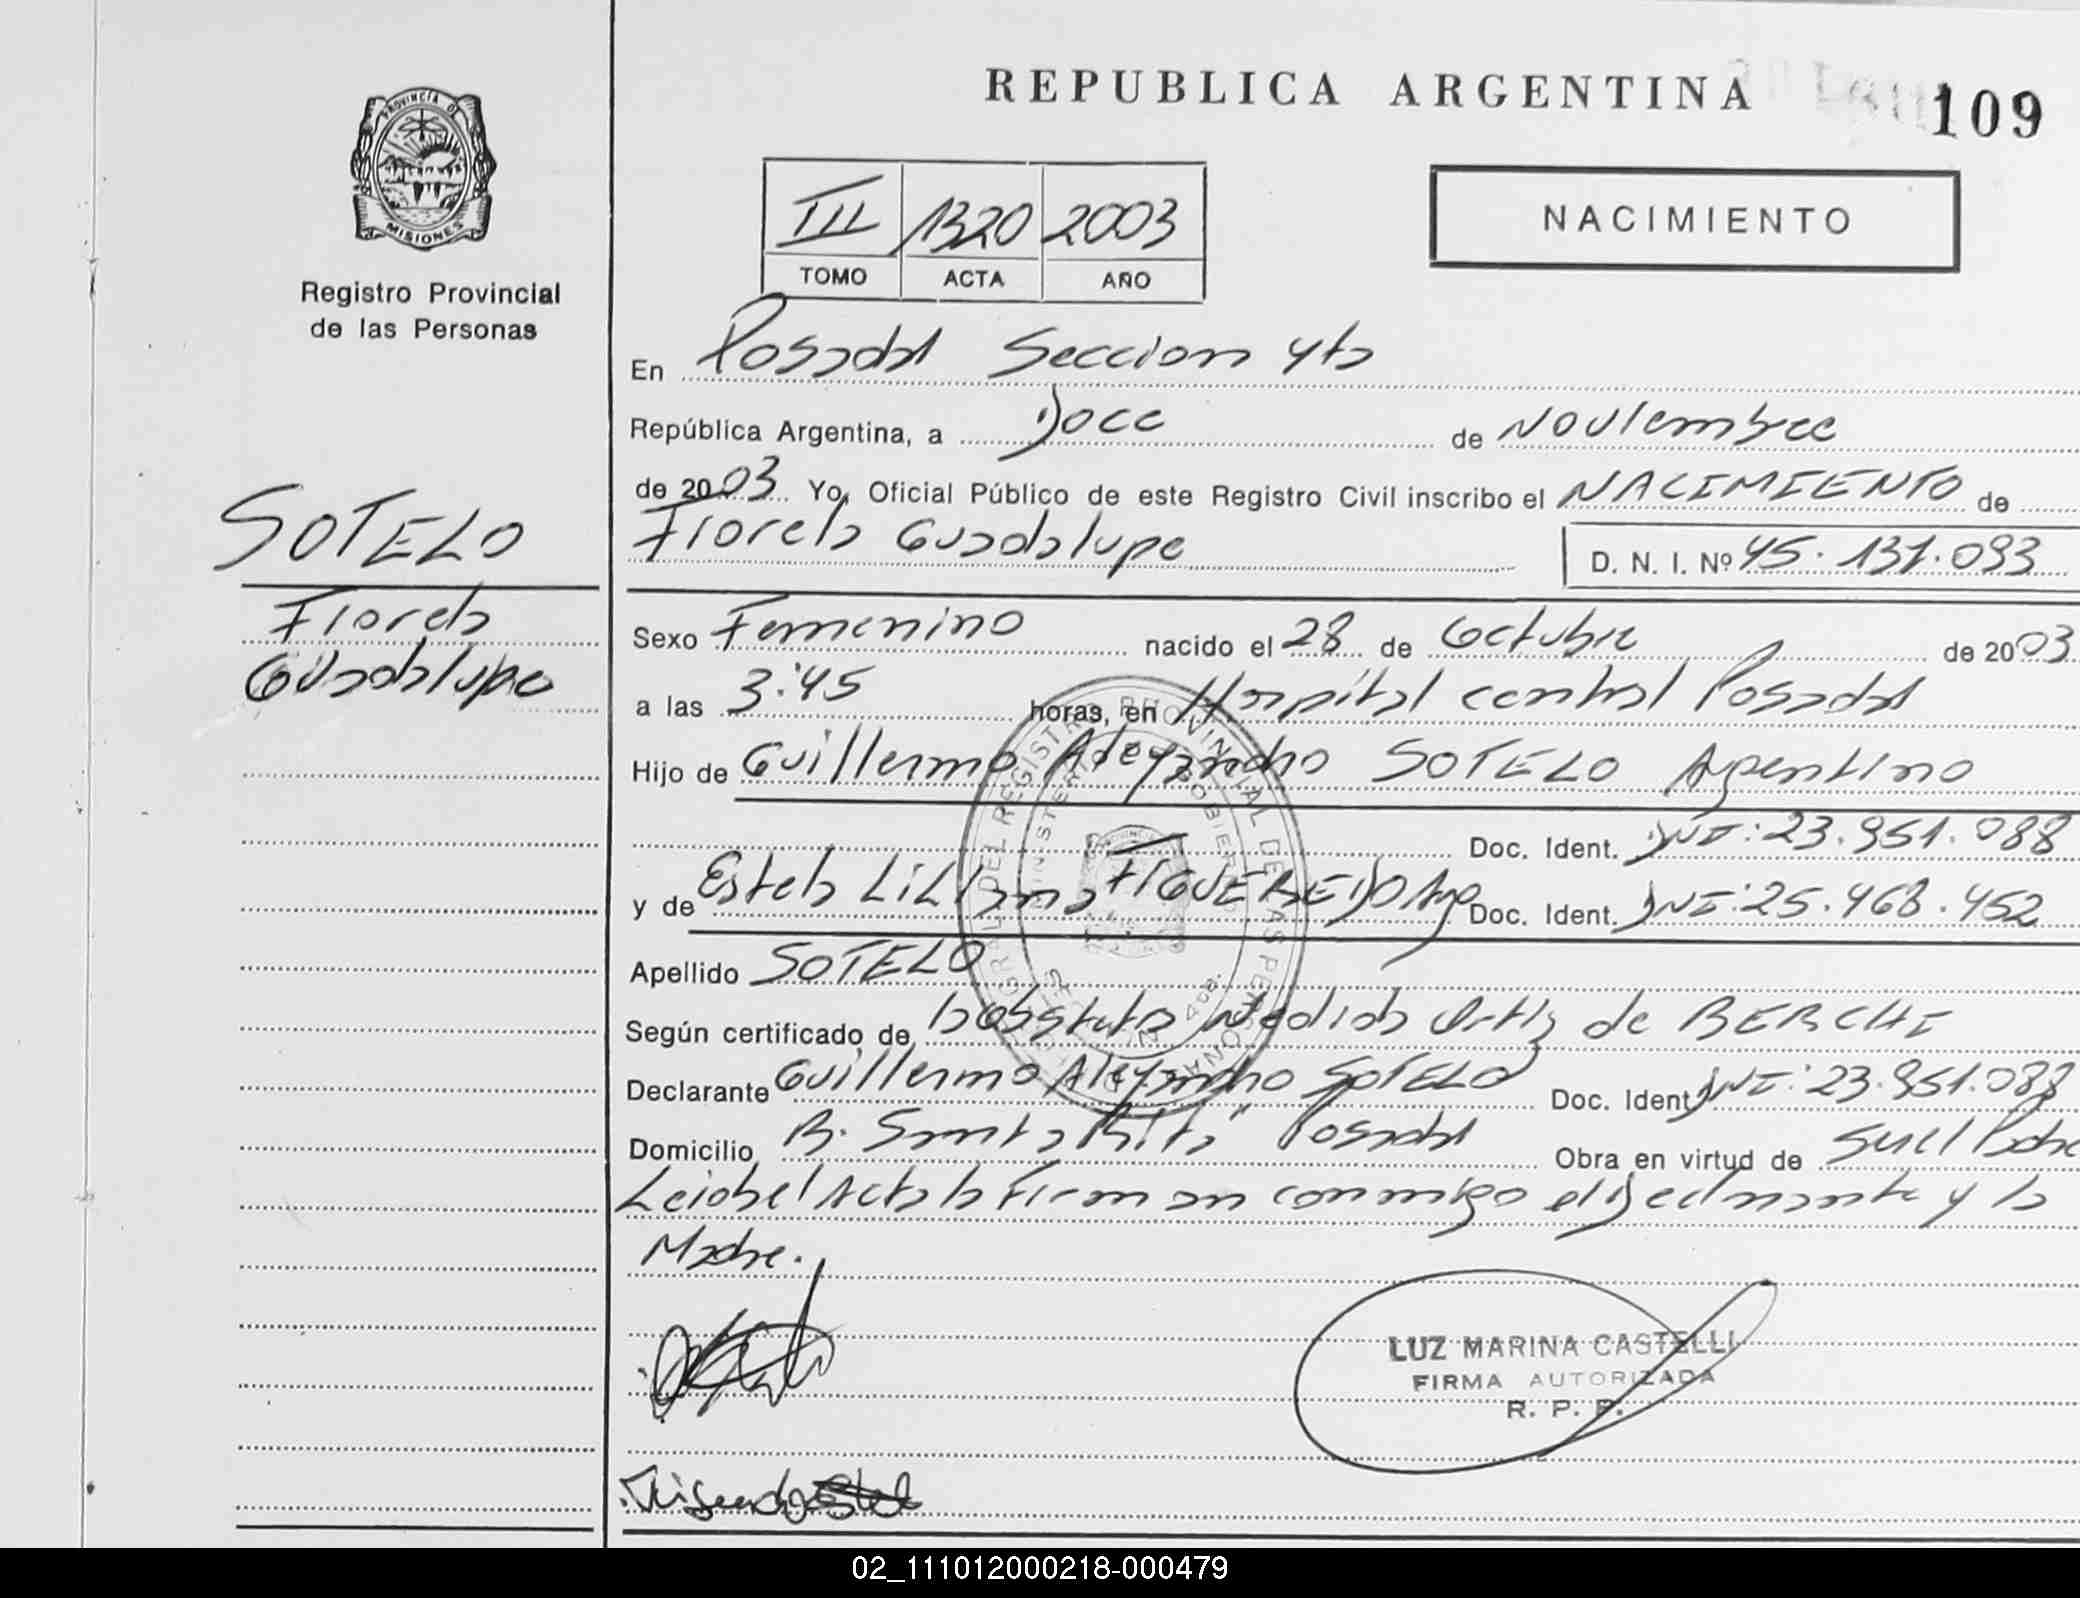 REPUBLICA ARGENTINA
109
PROVINCIA DE
MISIONES
Registro Provincial
de las Personas
III 1320 2003
TOMO ACTA AÑO
NACIMIENTO
En Posadas Seccion 4ta
República Argentina, a Doce de Noviembre
de 2003 Yo, Oficial Público de este Registro Civil inscribo el NACIMIENTO de
Fiorela Guadalupe
D. N. I. Nº 45.131.093
SOTELO
Fiorela
Guadalupe
Sexo Femenino nacido el 28 de Octubre de 2003
a las 3:45 horas, en Hospital central Posadas
Hijo de Guillermo Alejandro SOTELO Argentino
Doc. Ident. DNI: 23.951.088
y de Estela Liliana FIGUEREDO Arg Doc. Ident. DNI: 25.468.452
Apellido SOTELO
Según certificado de Obstetra Medida Ortiz de BERCHI
Declarante Guillermo Alejandro SOTELO Doc. Ident DNI: 23.951.088
Domicilio B. Santa Rita" Posadas Obra en virtud de ser el Padre
Leida el Acta la Firman conmigo el Declarante y la
Madre.
LUZ MARINA CASTELLI
FIRMA AUTORIZADA
R. P. P.
02_111012000218-000479